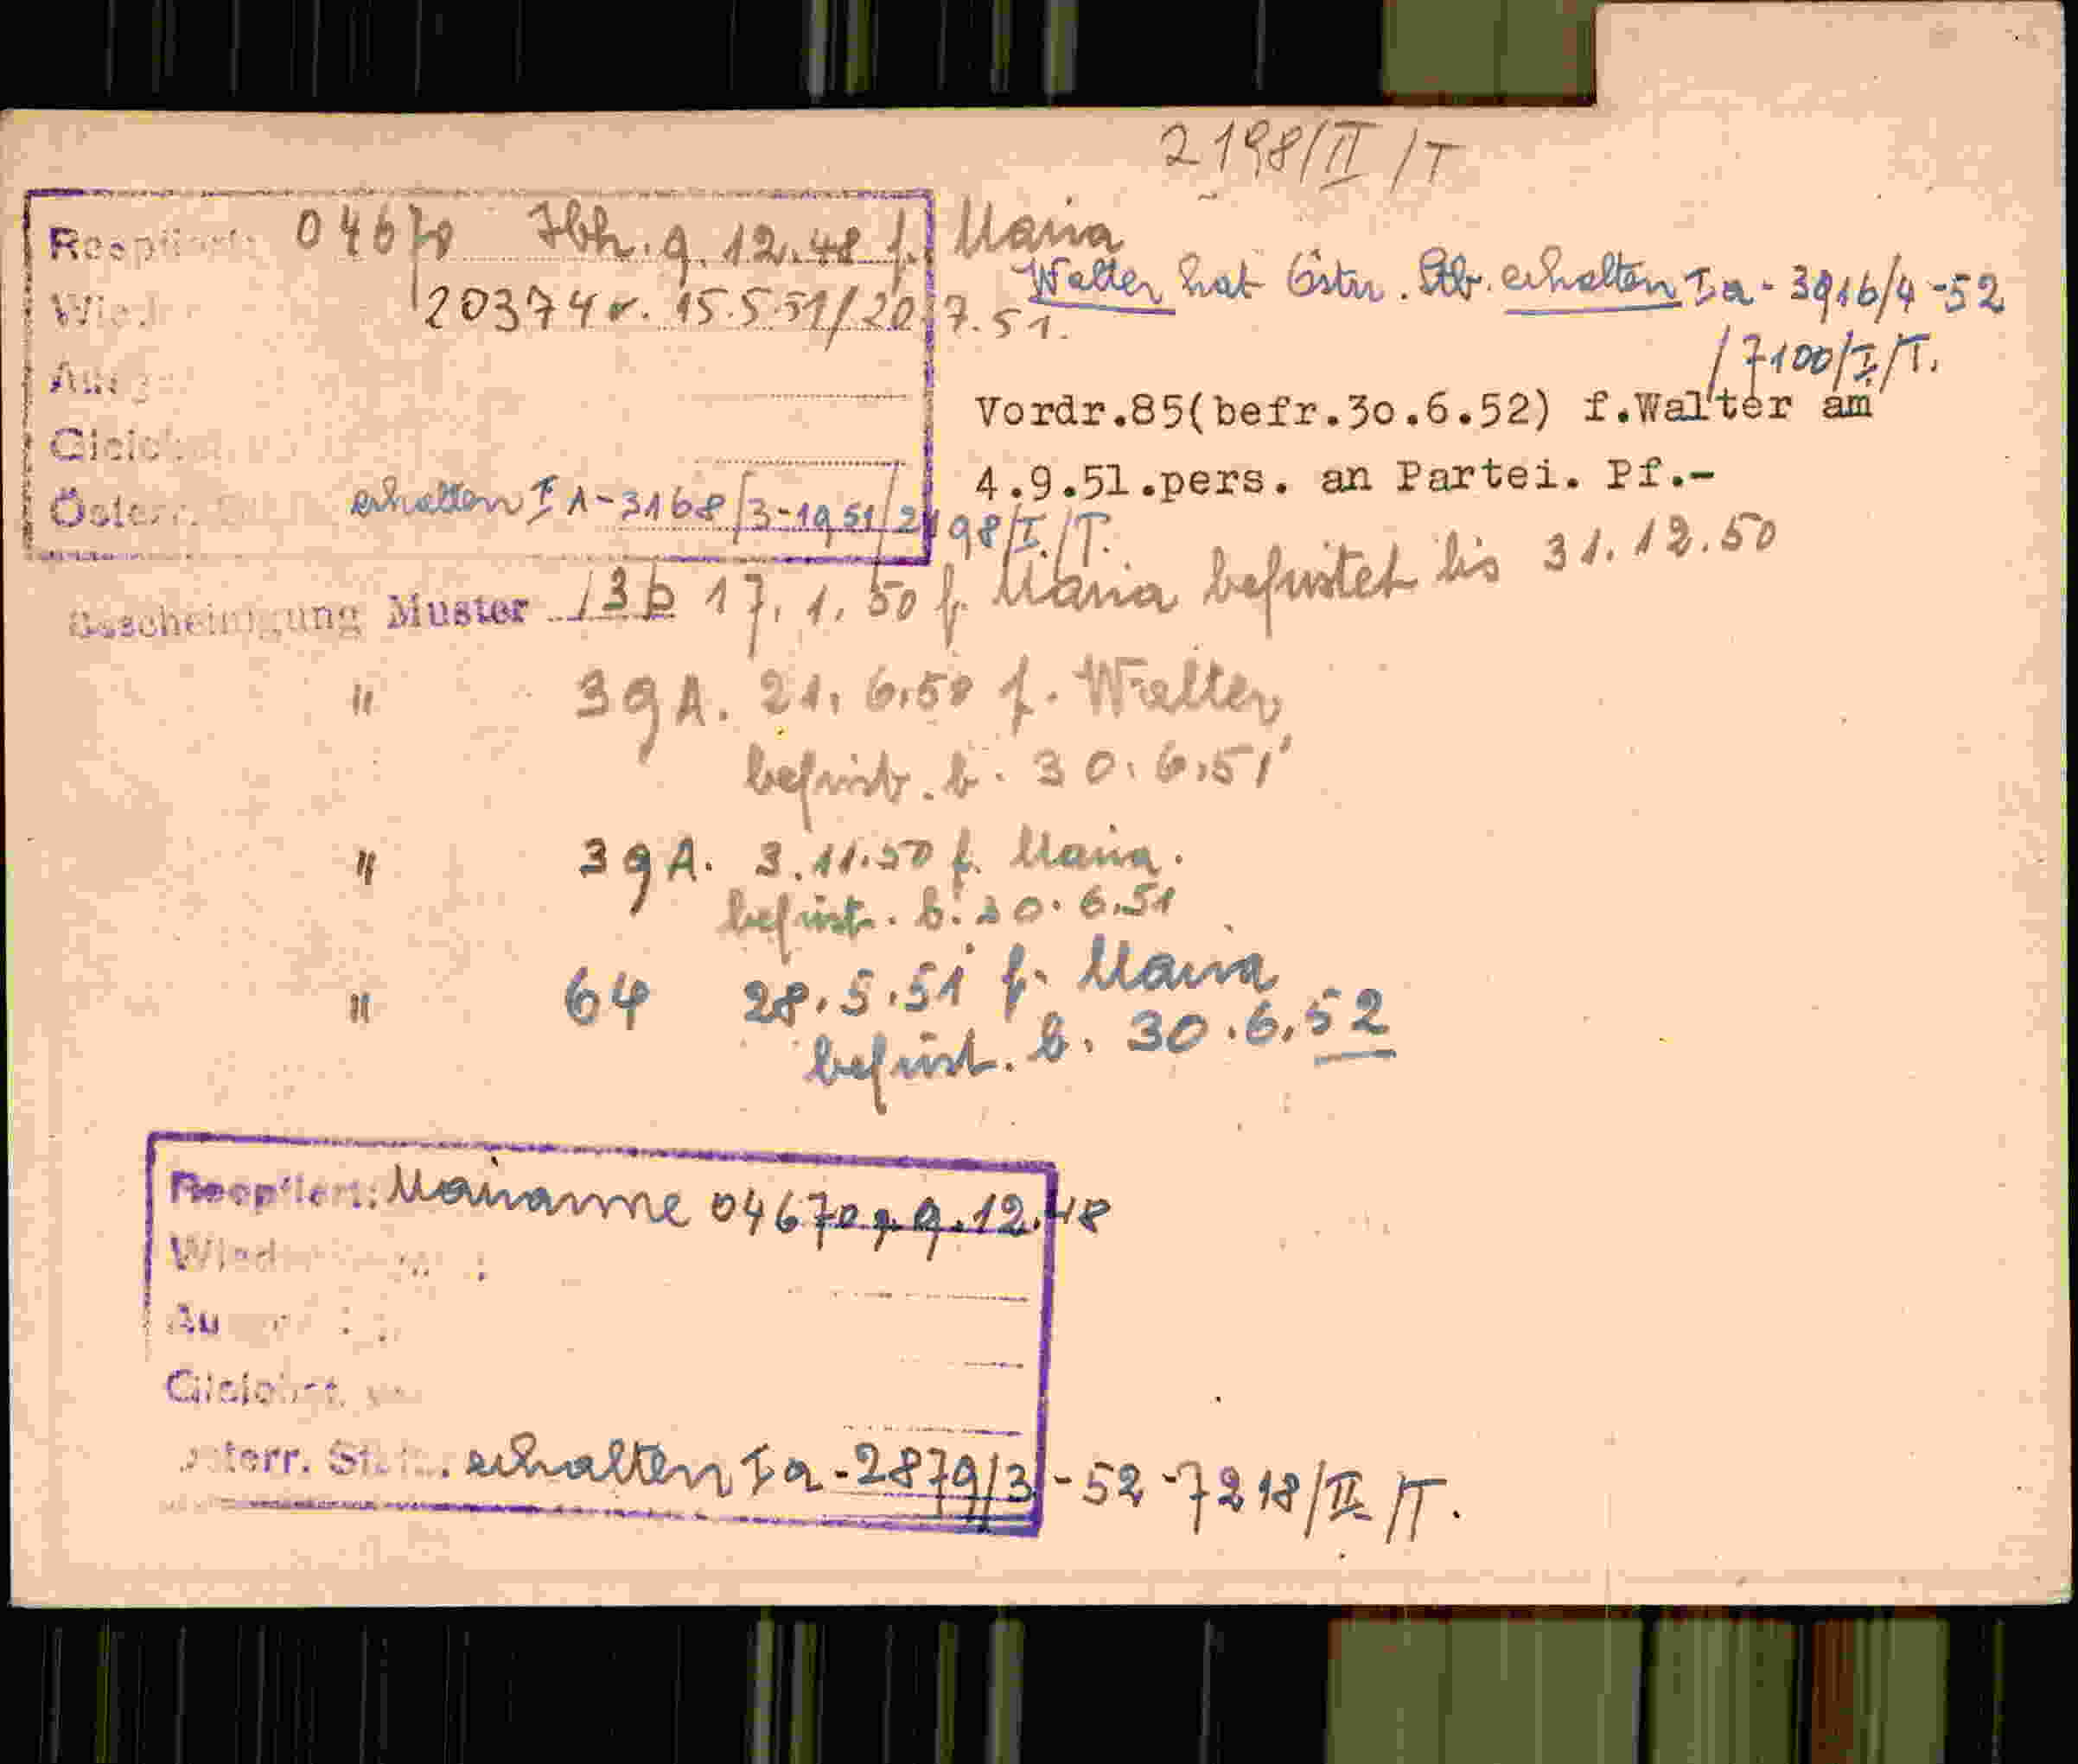 2198/II/T
04670 Ibh. 9.12.48 f. Maria
20374 v. 15.5.51/20.7.51.
Walter hat Östr. Stb. erhalten Ia-3916/4-52
/7100/I/T.
Vordr.85(befr.30.6.52) f.Walter am
4.9.51.pers. an Partei. Pf.-
Österr. erhalten IA-3168/3-1951/2198/I./T.
Bescheinigung Muster 13b 17.1.50 f. Maria befristet bis 31.12.50
" 39A. 21.6.50 f. Walter
befrist. b. 30.6.51
" 39A. 3.11.50 f. Maria.
befrist. b. 30.6.51
" 64 28.5.51 f. Maria
befrist. b. 30.6.52
Marianne 04670 v. 9.12.48
erhalten Ia-2879/3-52-7218/II/T.